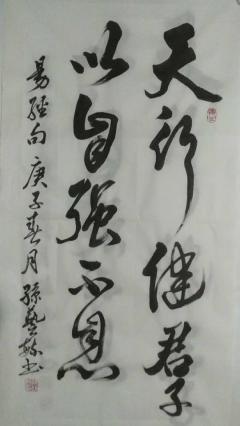 天行健君子
以自强不息
易经句庚子春月孙艺赫书